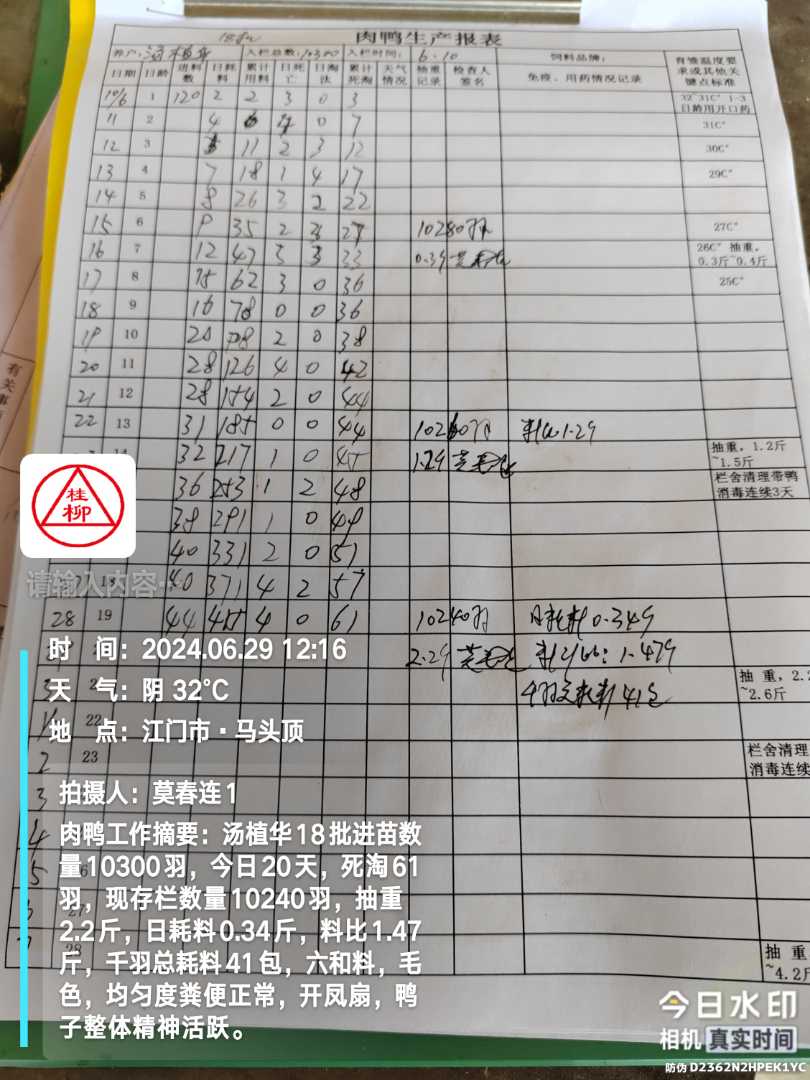 肉鸭生产报表
养户:汤植华 入栏总数:10300 入栏时间:6.10 饲料品牌:
日期 日龄 进料数 日耗料 累计用料 日死亡 日淘汰 累计死淘 天气情况 抽重记录 检查人签名 免疫、用药情况记录 有雏温度要求或其他关键点标准
10/6 1 120 2 2 3 0 3 32~31C° 1-3日龄用开口药
11 2 4 6 4 0 7 31C°
12 3 5 11 2 3 12 30C°
13 4 7 18 1 4 17 29C°
14 5 8 26 3 2 22
15 6 9 35 2 3 27 10280羽 27C°
16 7 12 47 3 3 33 0.39 26C° 抽重,0.3斤~0.4斤
17 8 15 62 3 0 36 25C°
18 9 16 78 0 0 36
19 10 20 98 2 0 38
20 11 28 126 4 0 42
21 12 28 154 2 0 44
22 13 31 185 0 0 44 10260羽 料比1.29
14 32 217 1 0 45 1.29 抽重,1.2斤~1.5斤
36 253 1 2 48 栏舍清理带鸭消毒连续3天
38 291 1 0 49
40 331 2 0 51
18 40 371 4 2 57
28 19 44 415 4 0 61 10240羽 日耗料0.349
2.29 料比:1.479
抽重,2.2~2.6斤
千羽总耗料41包
22
2 23 栏舍清理消毒连续
3
4
5
6
28 抽重~4.2斤
有关事
桂柳
请输入内容…
时 间:2024.06.29 12:16
天 气:阴 32℃
地 点:江门市·马头顶
拍摄人:莫春连1
肉鸭工作摘要:汤植华18批进苗数
量10300羽,今日20天,死淘61
羽,现存栏数量10240羽,抽重
2.2斤,日耗料0.34斤,料比1.47
斤,千羽总耗料41包,六和料,毛
色,均匀度粪便正常,开凤扇,鸭
子整体精神活跃。
今日水印
相机 真实时间
防伪 D2362N2HPEK1YC